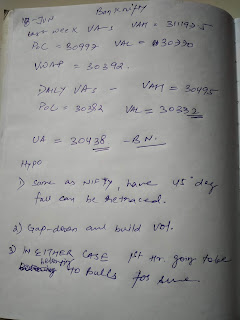 Banknifty
12-JUN
Last week VA-s VAH = 311925
POC = 30997 VAL = 30330
VWAP = 30392.
DAILY VA-s - VAH = 30495
POC = 30382 VAL = 30332
VA = 30438 - B.N.
Hypo
1) Same as NIFTY, have 45° deg
fall can be retraced.
2) Gap-down and build vol.
3) IN EITHER CASE 1st Hr. going to be
belonging to bulls for sure.